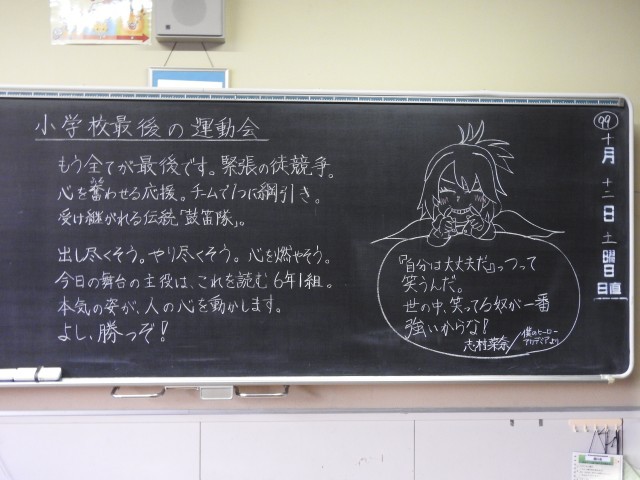 小学校最後の運動会
もう全てが最後です。緊張の徒競争。
心を奮わせる応援。チームで1つに綱引き。
受け継がれる伝統「鼓笛隊」。
出し尽くそう。やり尽くそう。心を燃やそう。
今日の舞台の主役は、これを読む6年1組。
本気の姿が、人の心を動かします。
よし、勝つぞ!
『自分は大丈夫だ』っつって
笑うんだ。
世の中、笑ってる奴が一番
強いからな!
志村菜奈/僕のヒーロー
アカデミアより
99
十月
十二日
土曜日
日直